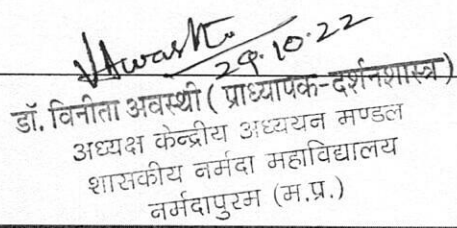 VAwasthi
29.10.22
डॉ. विनीता अवस्थी ( प्राध्यापक-दर्शनशास्त्र )
अध्यक्ष केन्द्रीय अध्ययन मण्डल
शासकीय नर्मदा महाविद्यालय
नर्मदापुरम (म.प्र.)